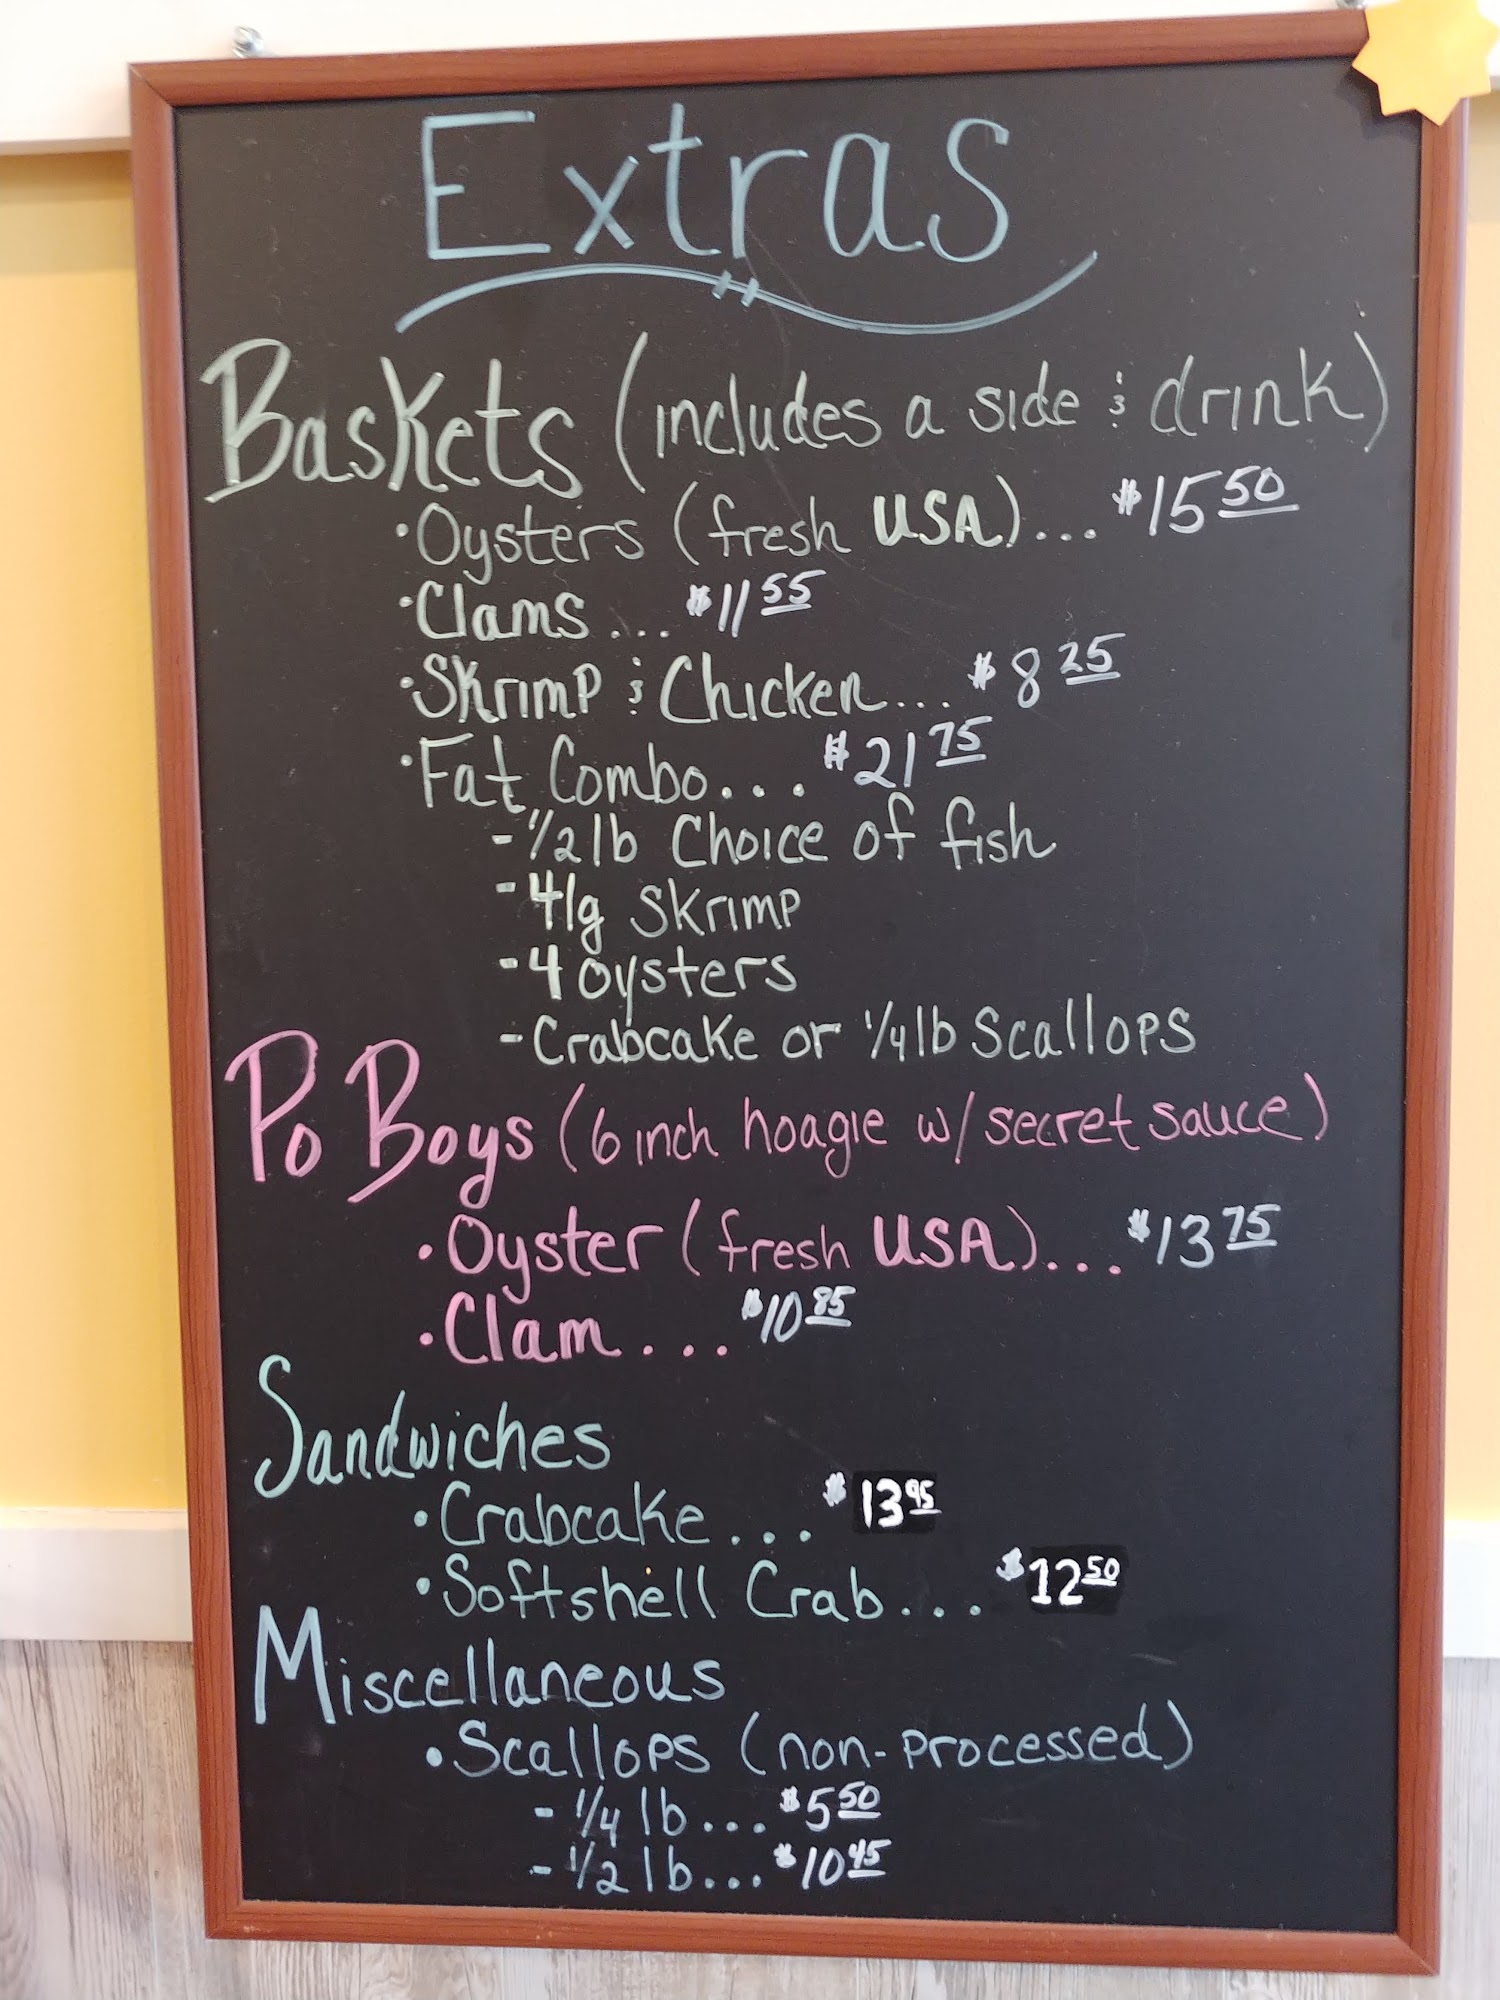 Extras
Baskets (includes a side & drink)
• Oysters (fresh USA)... $15 50
• Clams... $11 55
• Skrimp & Chicken... $8 25
• Fat Combo... $21 75
- 1/2 lb Choice of fish
- 4 lg Skrimp
- 4 oysters
- Crabcake or 1/4 lb Scallops
Po Boys (6 inch hoagie w/ secret sauce)
• Oyster (fresh USA)... $13 75
• Clam... $10 85
Sandwiches
• Crabcake... $13 95
• Softshell Crab... $12 50
Miscellaneous
• Scallops (non-processed)
- 1/4 lb... $5 50
- 1/2 lb... $10 45